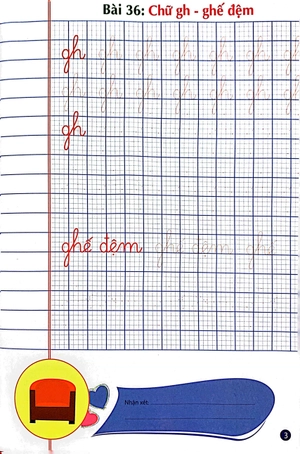 Bài 36: Chữ gh - ghế đệm
gh gh gh gh gh gh gh
gh gh gh gh gh gh gh
gh
ghế đệm ghế đệm ghế
Nhận xét:
3